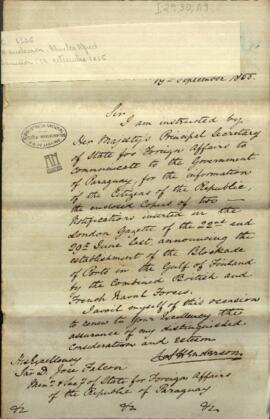 I.29,30,19.
17 September 1855.
Sir
I am instructed by
Her Majesty's Principal Secretary
of State for Foreign Affairs to
Communicate to the Government
of Paraguay, for the information
of the Citizens of the Republic,
the enclosed Copies of two
Notifications inserted in the
London Gazette of the 22nd and
20th June last, announcing the
establishment of the Blockade
of Ports in the Gulf of Finland
by the Combined British and
French Naval Forces.
I avail myself of this occasion
to renew to Your Excellency the
assurance of my distinguished
consideration and esteem
Henderson
His Excellency
José Falcon
of State for Foreign Affairs
of the Republic of Paraguay